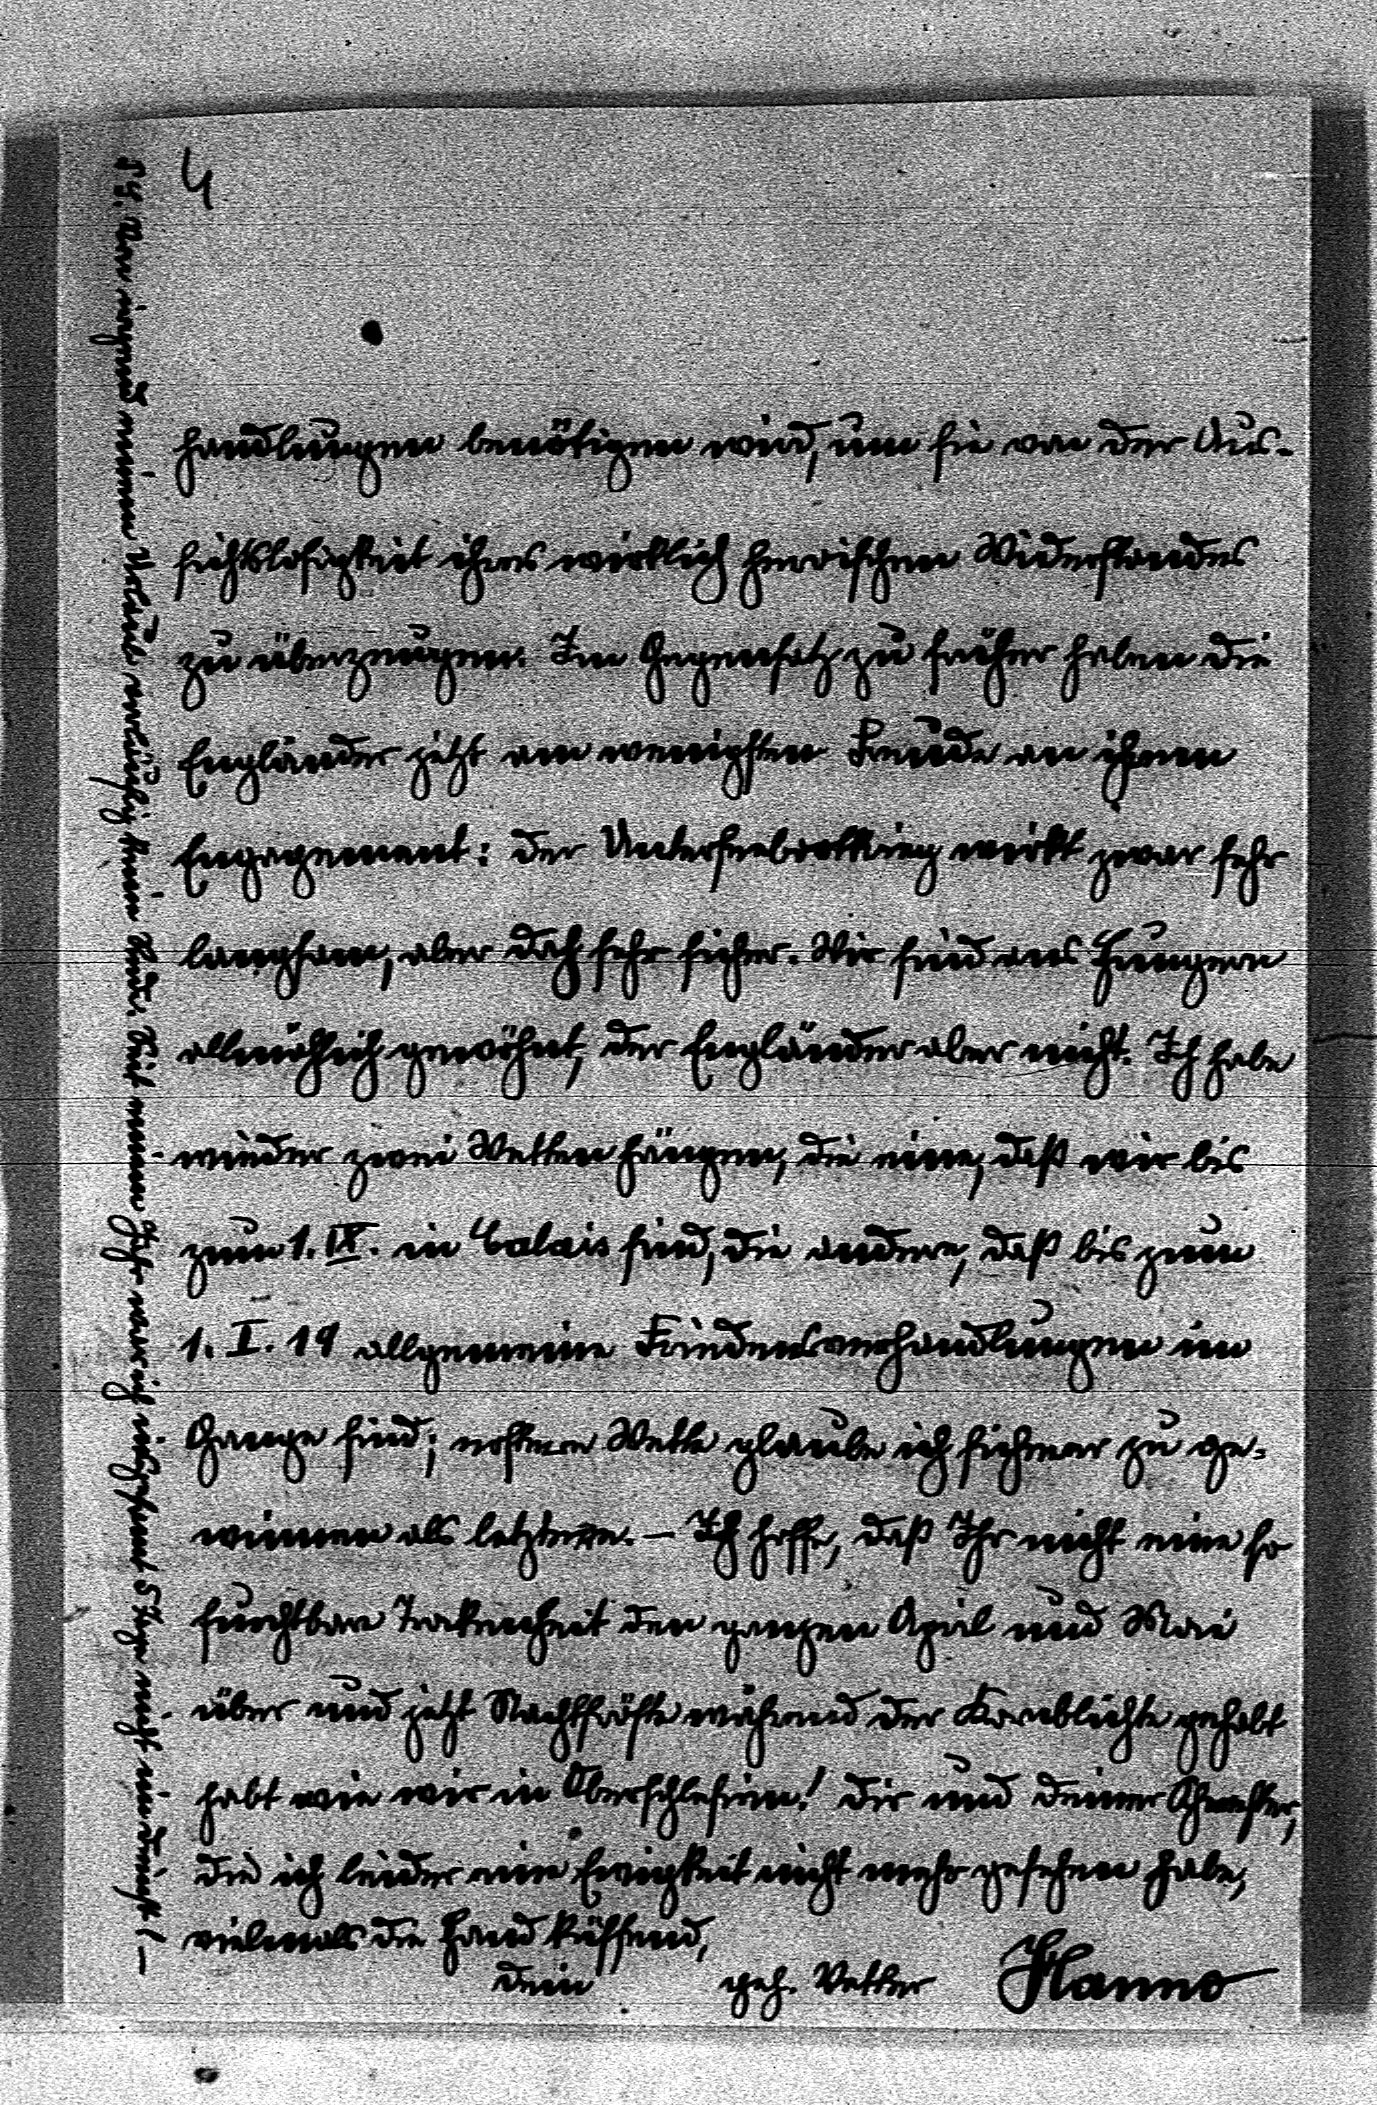 4
handlungen benötigen wird, um sie von der Aus-
sichtslosigkeit ihres wirklich heroischen Widerstandes
zu überzeugen. Im Gegensatz zu früher haben die
Engländer jetzt am wenigsten Freude an ihrem
Engagement: der Unterseebootkrieg wirkt zwar sehr
langsam, aber doch sehr sicher. Wir sind ans Hungern
allmählich gewöhnt, der Engländer aber nicht. Ich habe
wieder zwei Wetten hängen, die eine, daß wir bis
zum 1. IX. in Calais sind, die andere, daß bis zum
1. I. 19 allgemeine Friedensverhandlungen im
Gange sind; erstere Wette glaube ich sicherer zu ge-
winnen als letztere. – Ich hoffe, daß Ihr nicht eine so
furchtbare Trockenheit den ganzen April und Mai
über und jetzt Nachtfröste während der Kornblüthe gehabt
habt wie wir in Oberschlesien! Dir und Deiner Schwester,
die ich leider eine Ewigkeit nicht mehr gesehen habe,
vielmals die Hand küssend,
Dein geh. Vetter Hanno
Von irgend einem Urlaub vorläufig keine Rede. Seit einem Jahr war ich insgesamt 5 Tage nicht im Dienst! –